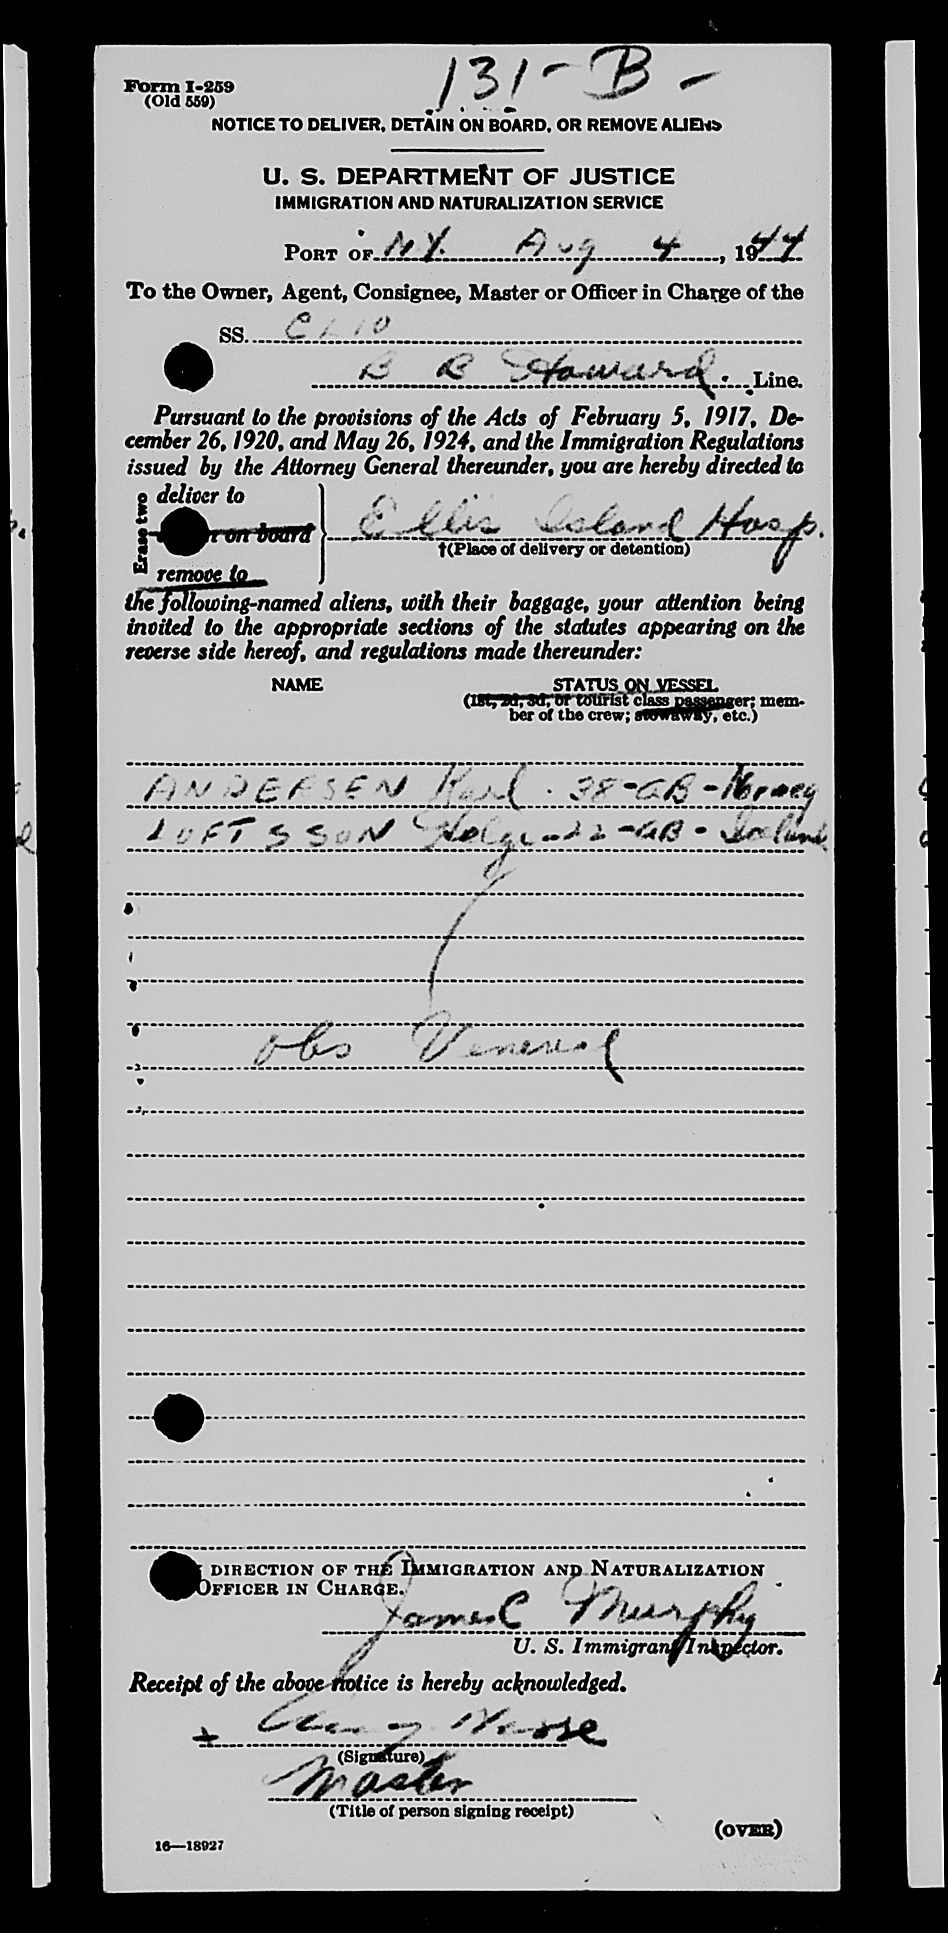 131-B-
Form I-259
(Old 559)
NOTICE TO DELIVER, DETAIN ON BOARD, OR REMOVE ALIENS
U. S. DEPARTMENT OF JUSTICE
IMMIGRATION AND NATURALIZATION SERVICE
PORT OF N.Y. Aug 4, 1944
To the Owner, Agent, Consignee, Master or Officer in Charge of the
SS. CLIO
B B Howard Line.
Pursuant to the provisions of the Acts of February 5, 1917, De-
cember 26, 1920, and May 26, 1924, and the Immigration Regulations
issued by the Attorney General thereunder, you are hereby directed to
Erase two
deliver to
on board
remove to
Ellis Island Hosp.
†(Place of delivery or detention)
the following-named aliens, with their baggage, your attention being
invited to the appropriate sections of the statutes appearing on the
reverse side hereof, and regulations made thereunder:
NAME STATUS ON VESSEL
(1st, 2d, 3d, or tourist class passenger; mem-
ber of the crew; stowaway, etc.)
ANDERSEN Karl - 38-AB-Norway
LOFTSSON Helge-22-AB-Iceland
obs Venereal
DIRECTION OF THE IMMIGRATION AND NATURALIZATION
OFFICER IN CHARGE.
James C Murphy
U. S. Immigrant Inspector.
Receipt of the above notice is hereby acknowledged.
(Signature)
Master
(Title of person signing receipt)
(OVER)
16—18927